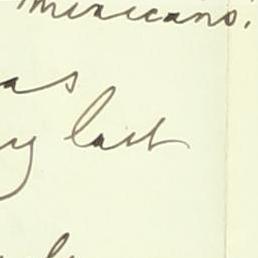 Mexicano.
as
y last